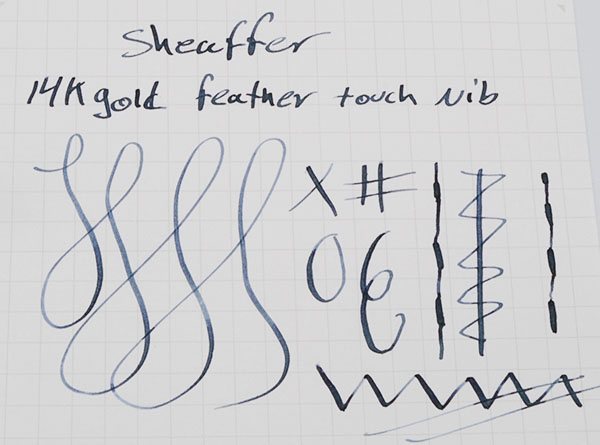 Sheaffer
14K gold feather touch nib
X #